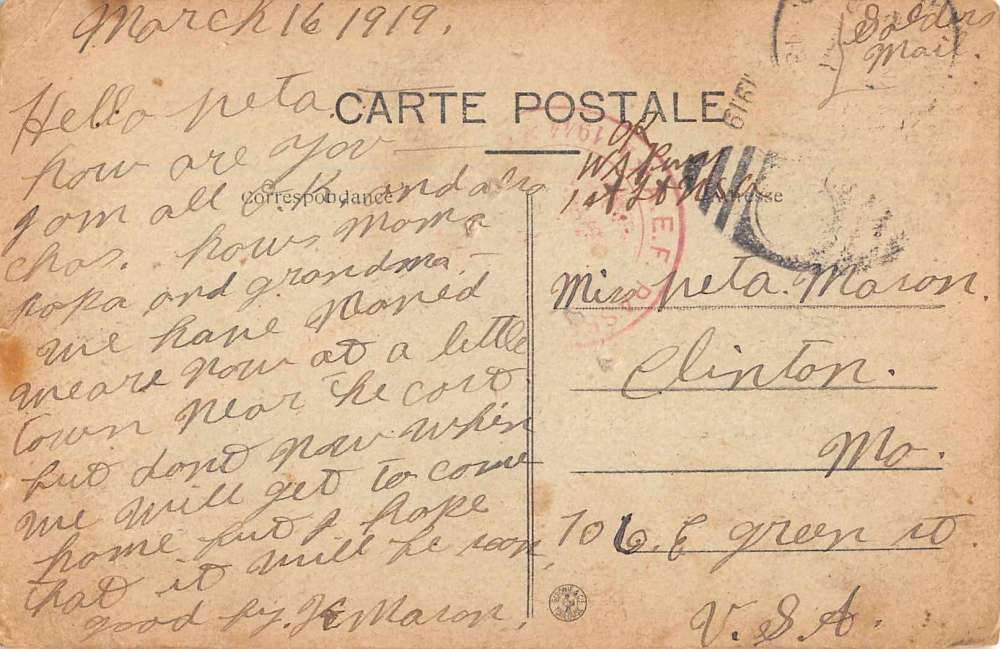 March 16 1919.
Soldiers
Mail.
1919
CARTE POSTALE
Correspondance
Adresse
Hello neta
how are you
gom all O.K. and also
chas. hows moma
popa and grandma –
we have moved
we are now at a little
town near the cost
but dont now when
we will get to come
home but I hope
that it will be soon
good by. Mason.
OK
1st Lt
A.E.F.
1944
Miss neta. Mason.
Clinton.
Mo.
706. E green st.
U.S.A.